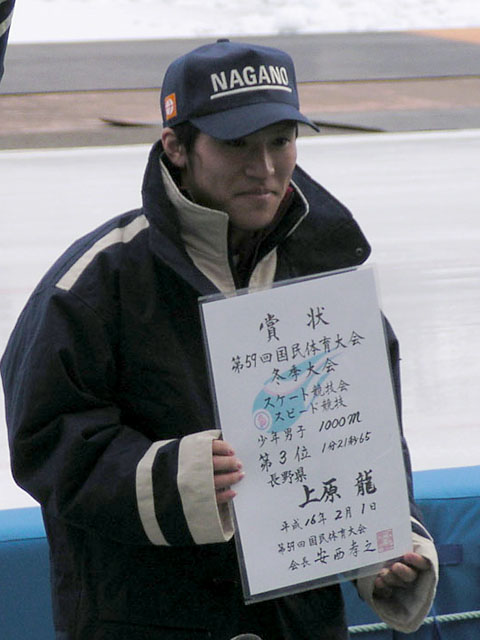 NAGANO
賞状
第59回国民体育大会
冬季大会
スケート競技会
スピード競技
少年男子 1000m
第3位 1分21秒65
長野県
上原 龍
平成16年2月1日
第59回国民体育大会
会長 安西孝之